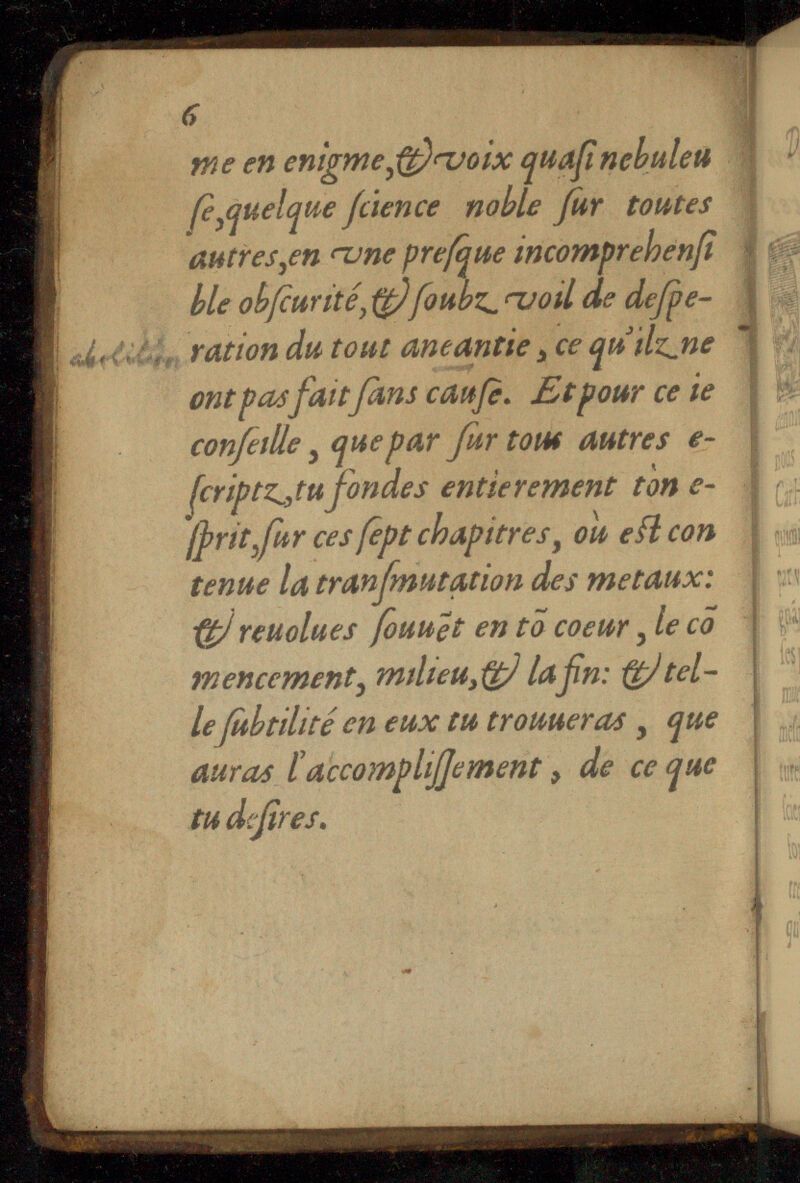 6
me en enigme,& voix quaſi nebuleu
ſe,quelque ſcience noble ſur toutes
autres,en vne preſque incomprehenſi
ble obſcurité,& ſoubz voil de deſpe-
ration du tout aneantie , ce qu'ilz ne
ont pas fait ſans cauſe. Et pour ce ie
conſeille , que par ſur tous autres e-
ſcriptz,tu fondes entierement ton e-
ſprit,ſur ces ſept chapitres, où eſt con
tenue la tranſmutation des metaux:
& reuolues ſouuēt en tō coeur , le cō
mencement, milieu,& la fin: & tel-
le ſubtilité en eux tu trouueras , que
auras l'accompliſſement , de ce que
tu deſires.